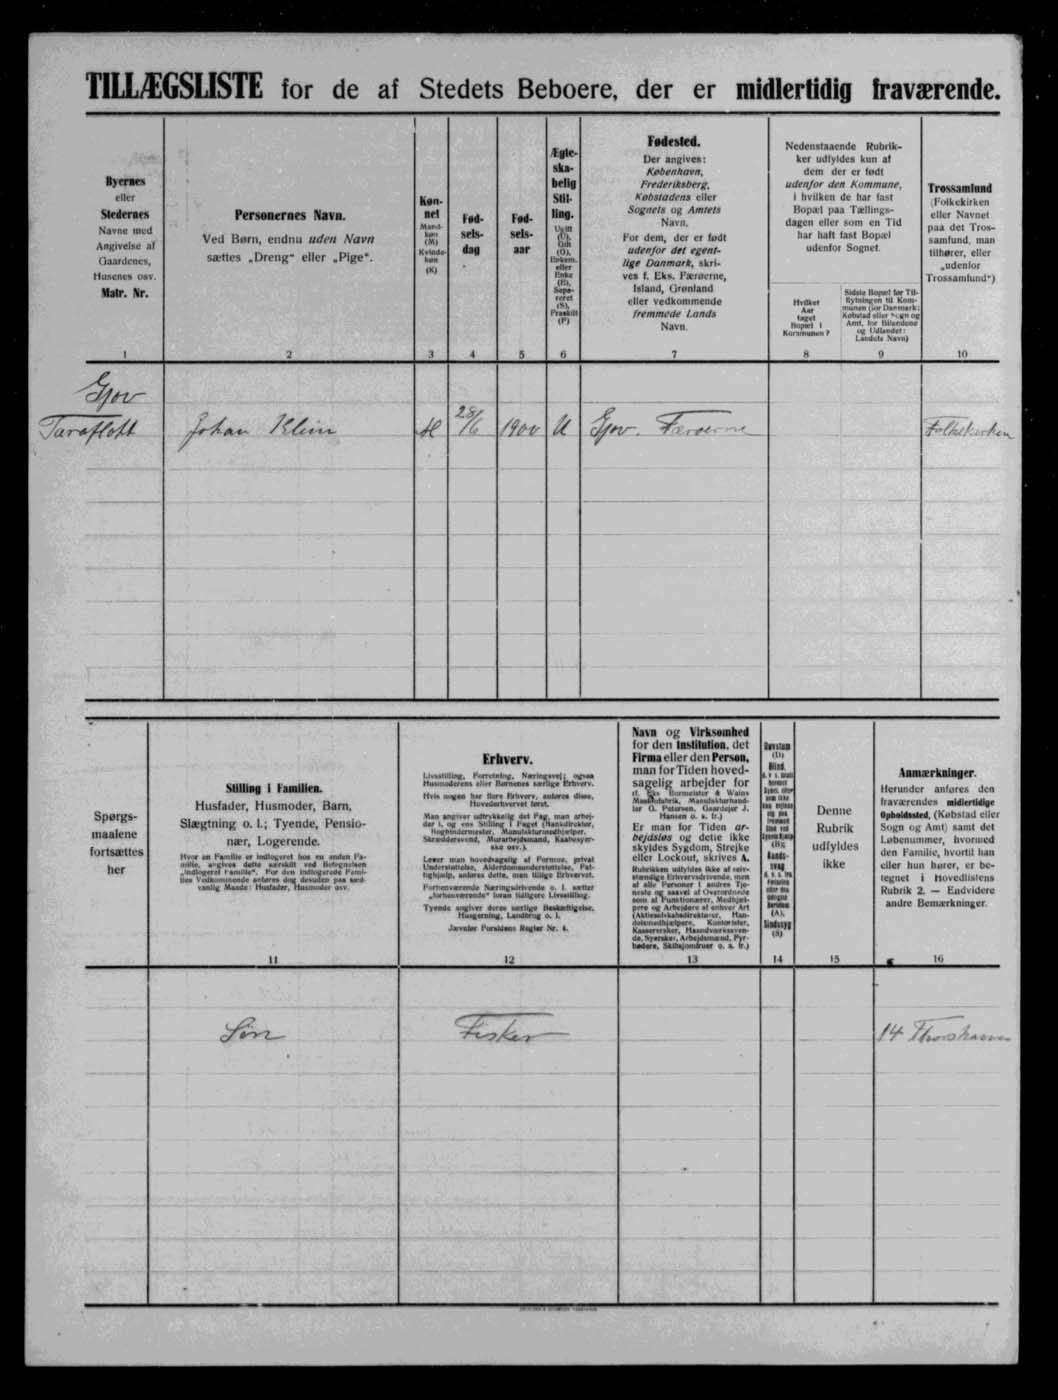 TILLÆGSLISTE for de af Stedets Beboere, der er midlertidig fraværende.
Byernes
eller
Stedernes
Navne med
Angivelse af
Gaardenes,
Husenes osv.
Matr. Nr.
1
Personernes Navn.
Ved Børn, endnu uden Navn
sættes „Dreng“ eller „Pige“.
2
Køn-
net
Mand-
køn
(M)
Kvinde-
køn
(K)
3
Fød-
sels-
dag
4
Fød-
sels-
aar
5
Ægte-
ska-
belig
Stil-
ling.
Ugift
(U),
Gift
(G),
Enkem.
eller
Enke
(E),
Sepa-
reret
(S),
Fraskilt
(F)
6
Fødested.
Der angives:
København,
Frederiksberg,
Købstadens eller
Sognets og Amtets
Navn.
For dem, der er født
udenfor det egent-
lige Danmark, skri-
ves f. Eks. Færøerne,
Island, Grønland
eller vedkommende
fremmede Lands
Navn.
7
Nedenstaaende Rubrik-
ker udfyldes kun af
dem der er født
udenfor den Kommune,
i hvilken de har fast
Bopæl paa Tællings-
dagen eller som en Tid
har haft fast Bopæl
udenfor Sognet.
Hvilket
Aar
taget
Bopæl i
Kommunen?
8
Sidste Bopæl før Til-
flytningen til Kom-
munen (for Danmark:
Købstad eller Sogn og
Amt, for Bilandene
og Udlandet:
Landets Navn)
9
Trossamfund
(Folkekirken
eller Navnet
paa det Tros-
samfund, man
tilhører, eller
„udenfor
Trossamfund“)
10
Gjov
Taraflott Johan Klein M 28/6 1900 U Gjov. Færøerne Folkekirken
Spørgs-
maalene
fortsættes
her
Stilling i Familien.
Husfader, Husmoder, Barn,
Slægtning o. l.; Tyende, Pensio-
nær, Logerende.
Hvor en Familie er indlogeret hos en anden Fa-
milie, angives dette særskilt ved Betegnelsen
„indlogeret Familie“. For den indlogerede Fami-
lies Vedkommende anføres dog desuden paa sæd-
vanlig Maade: Husfader, Husmoder osv.
11
Erhverv.
Livsstilling, Forretning, Næringsvej; ogsaa
Husmoderens eller Børnenes særlige Erhverv.
Hvis nogen har flere Erhverv, anføres disse,
Hovederhvervet først.
Man angiver udtrykkelig det Fag, man arbej-
der i, og ens Stilling i Faget (Bankdirektør,
Bogbindermester, Manufakturmedhjælper,
Skræddersvend, Murarbejdsmand, Kaabesyer-
ske osv.).
Lever man hovedsagelig af Formue, privat
Understøttelse, Alderdomsunderstøttelse, Fat-
tighjælp, anføres dette, man tillige Erhvervet.
Forhenværende Næringsdrivende o. l. sætter
„forhenværende“ foran tidligere Livsstilling.
Tyende angiver deres særlige Beskæftigelse,
Husgerning, Landbrug o. l.
Jævnfør Forsidens Regler Nr. 4.
12
Navn og Virksomhed
for den Institution, det
Firma eller den Person,
man for Tiden hoved-
sagelig arbejder for
(f. Eks Burmeister & Wains
Maskinfabrik, Manufakturhand-
ler G. Petersen, Gaardejer J.
Hansen o. s. fr.)
Er man for Tiden ar-
bejdsløs og dette ikke
skyldes Sygdom, Strejke
eller Lockout, skrives A.
Rubrikken udfyldes ikke af selv-
stændige Erhvervsdrivende, men
af alle Personer i andres Tje-
neste og saavel af Overordnede
som af Funktionærer, Medhjæl-
pere og Arbejdere af enhver Art
(Aktieselskabsdirektører, Han-
delsmedhjælpere, Kontorister,
Kassererske, Haandværkssven-
de, Syersker, Arbejdsmænd, Fyr-
bødere, Skibsjomfruer o. s. fr.)
13
Døvstum
(D)
Blind,
(B);
Aands-
svag
(A),
Sindssyg
(S)
14
Denne
Rubrik
udfyldes
ikke
15
Anmærkninger.
Herunder anføres den
fraværendes midlertidige
Opholdssted, (Købstad eller
Sogn og Amt) samt det
Løbenummer, hvormed
den Familie, hvortil han
eller hun hører, er be-
tegnet i Hovedlistens
Rubrik 2. — Endvidere
andre Bemærkninger.
16
Søn Fisker 14 Thorshavn